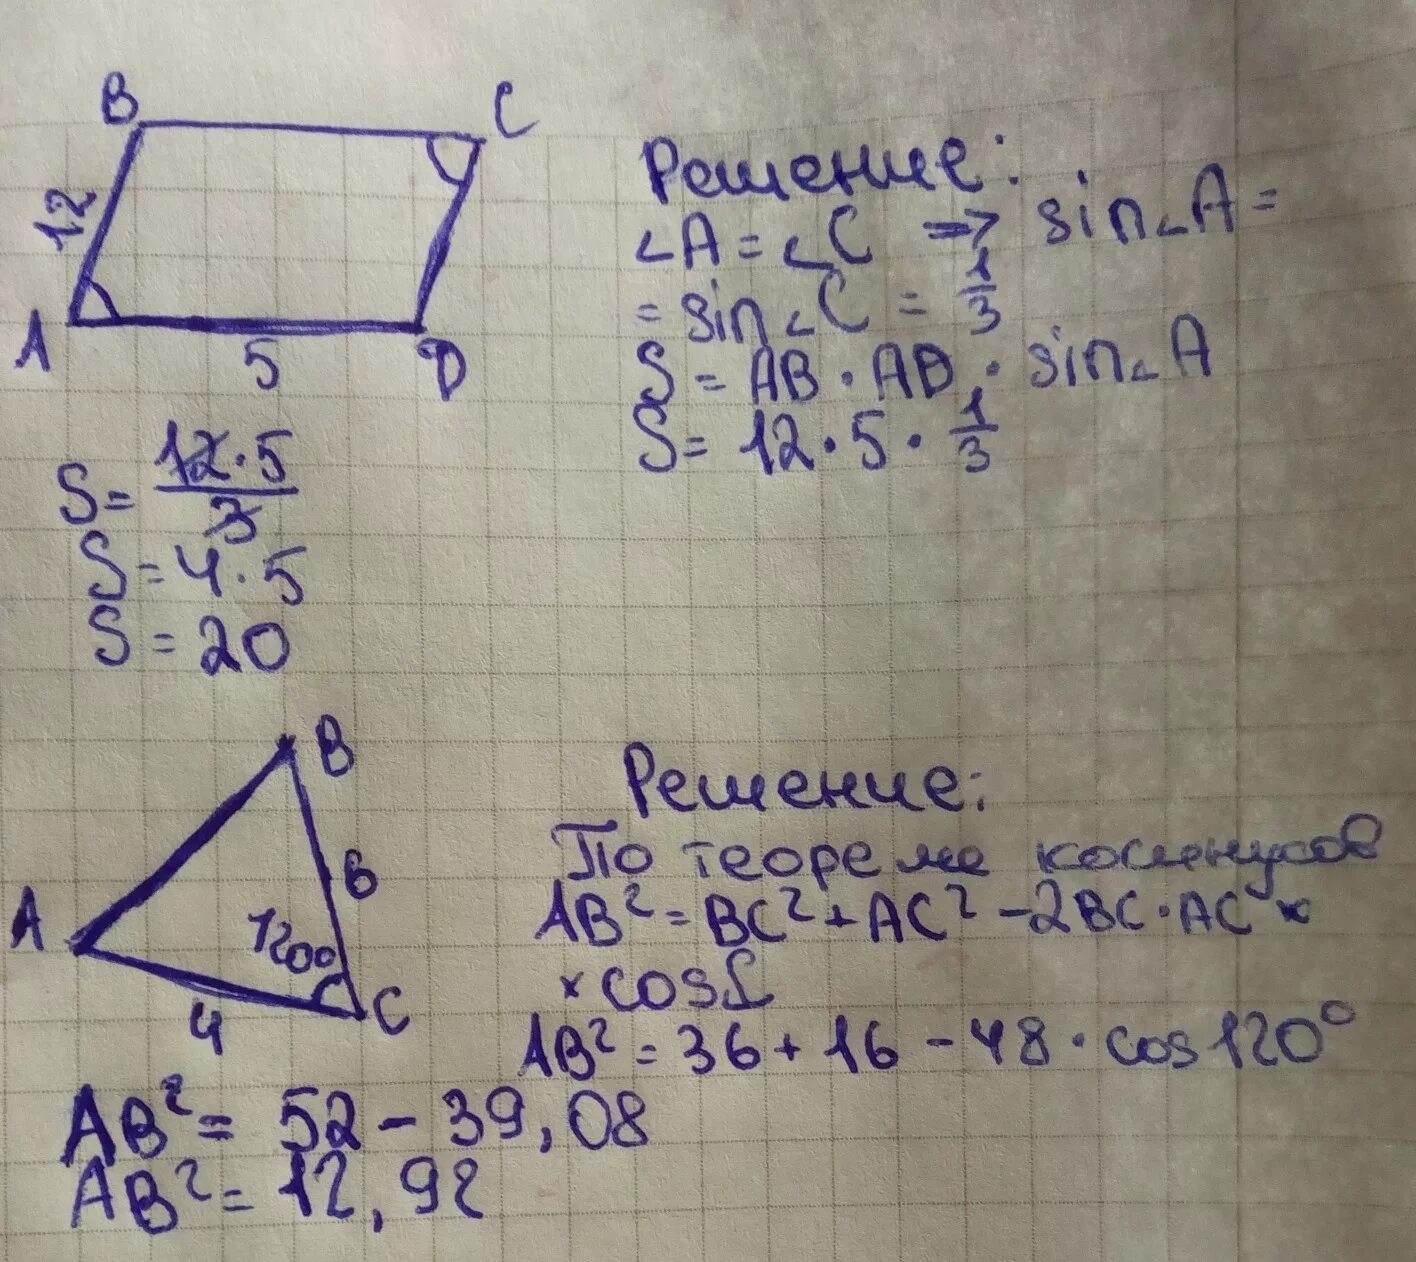 B C
12
A 5 D
Решение:
∠A = ∠C => sin∠A =
= sin∠C = 1/3
S = AB · AD · sin∠A
S = 12 · 5 · 1/3
S = 12·5/3
S = 4·5
S = 20
B
6
A
120°
4
C
Решение:
По теореме косинусов
AB² = BC² + AC² - 2BC·AC ×
× cos
AB² = 36 + 16 - 48 · cos120°
AB² = 52 - 39,08
AB² = 12,92